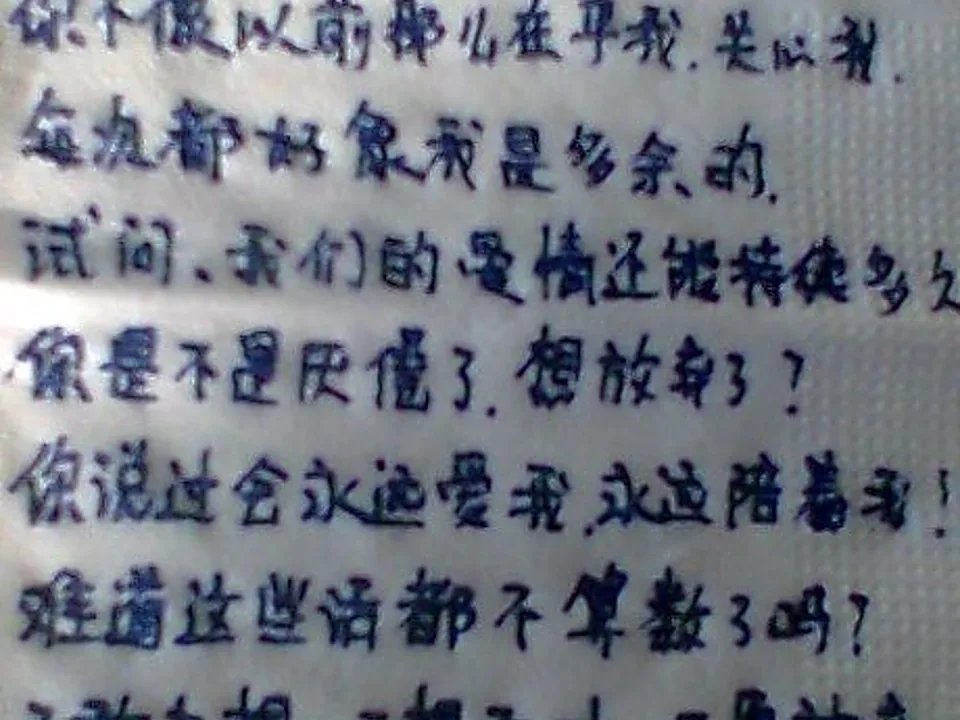 你不像以前那么在乎我.关心我.
每次都好象我是多余、的.
试问、我们的爱情还能持续多久
你是不是厌倦了.想放弃了?
你说过会永远爱我.永远陪着我!
难道这些话都不算数了吗?